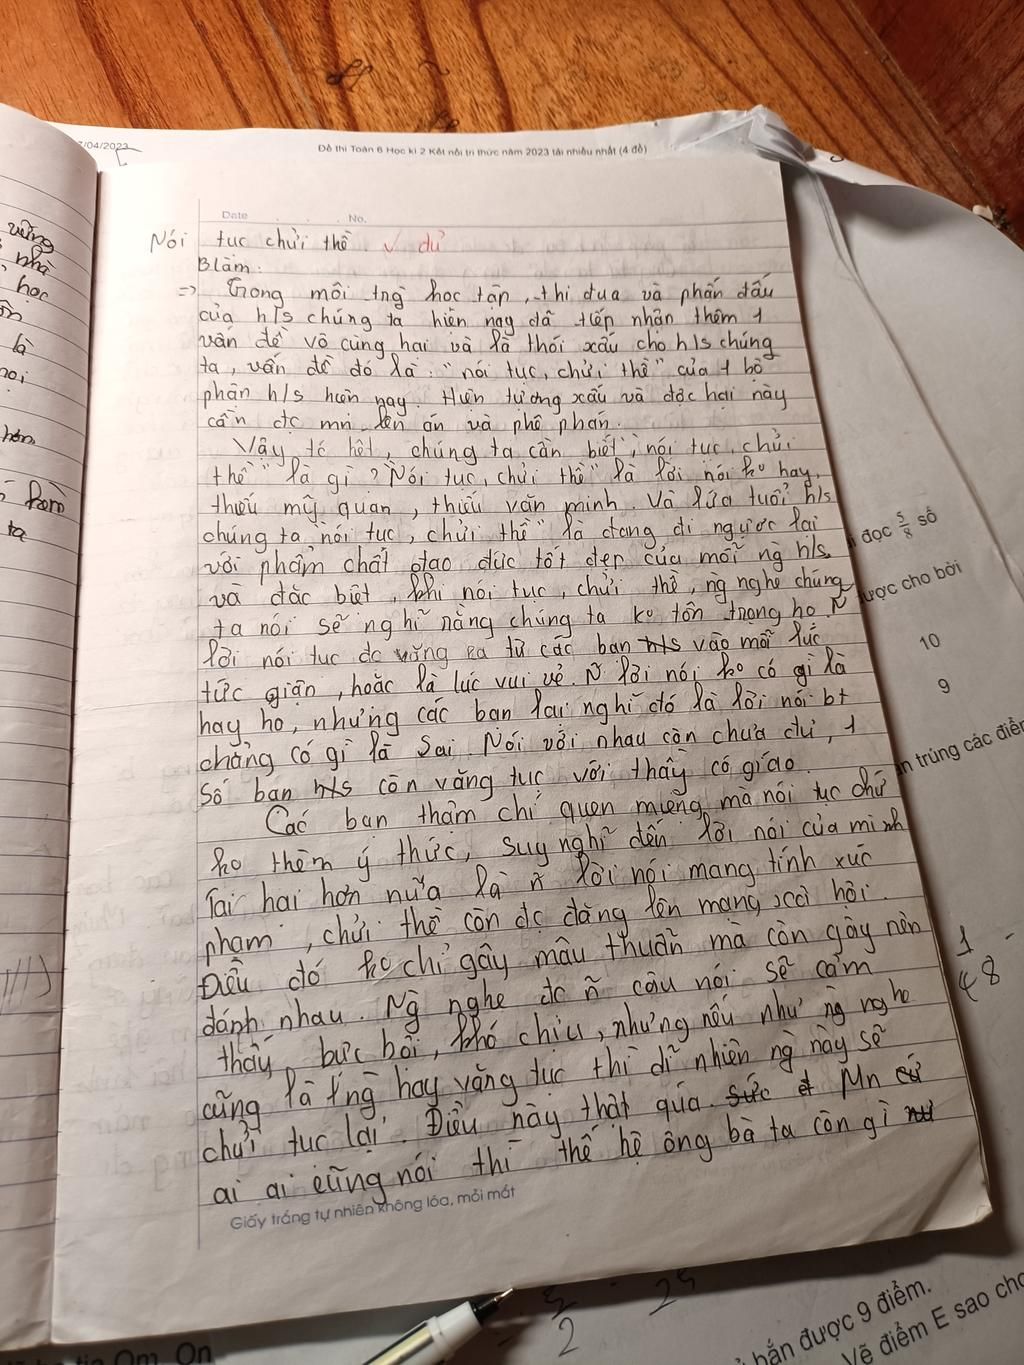 /04/2023
Đề thi Toán 6 Học kì 2 Kết nối tri thức năm 2023 tải nhiều nhất (4 đề)
Date . . . No.
Nói tục chửi thề ✓ đủ
B làm:
=> Trong môi trg học tập, thi đua và phấn đấu
của h/s chúng ta hiện nay đã tiếp nhận thêm 1
vấn đề vô cùng hại và là thói xấu cho h/s chúng
ta, vấn đề đó là: "nói tục, chửi thề" của 1 bộ
phận h/s hiện nay. Hiện tượng xấu và độc hại này
cần đc mn lên án và phê phán.
Vậy tó hết, chúng ta cần biết "nói tục, chửi
thề" là gì? Nói tục, chửi thề" là lời nói ko hay,
thiếu mỹ quan, thiếu văn minh. Và lứa tuổi h/s
chúng ta "nói tục, chửi thề" là đang đi ngược lại
với phẩm chất đạo đức tốt đẹp của mỗi ng h/s
và đặc biệt, khi nói tục, chửi thề, ng nghe chúng
ta nói sẽ nghĩ rằng chúng ta ko tôn trọng họ. N~
lời nói tục đc văng ra từ các bạn h/s vào mỗi lúc
tức giận, hoặc là lúc vui vẻ. N~ lời nói ko có gì là
hay ho, nhưng các bạn lại nghĩ đó là lời nói bt
chẳng có gì là sai. Nói với nhau còn chưa đủ, 1
số bạn h/s còn văng tục với thầy cô giáo.
Các bạn thậm chí quen miệng mà nói tục chứ
ko thèm ý thức, suy nghĩ đến lời nói của mình
Tai hại hơn nữa là n~ lời nói mang tính xúc
phạm, chửi thề còn đc đăng lên mạng xã hội.
Điều đó ko chỉ gây mâu thuẫn mà còn gây nên
đánh nhau. Ng nghe đc n~ câu nói sẽ cảm
thấy bực bội, khó chịu, nhưng nếu như ng nghe
cũng là 1 ng hay văng tục thì dĩ nhiên ng này sẽ
chửi tục lại. Điều này thật quá sức Mn
ai ai cũng nói thì thế hệ ông bà ta còn gì
Giấy trắng tự nhiên không lóa, mỏi mắt
vững
nhà
học
là
hơn
ta
đọc 5/8 số
được cho bởi
10
9
trùng các điểm
1
48
5/2
25
bắn được 9 điểm.
Vẽ điểm E sao cho
Om, On